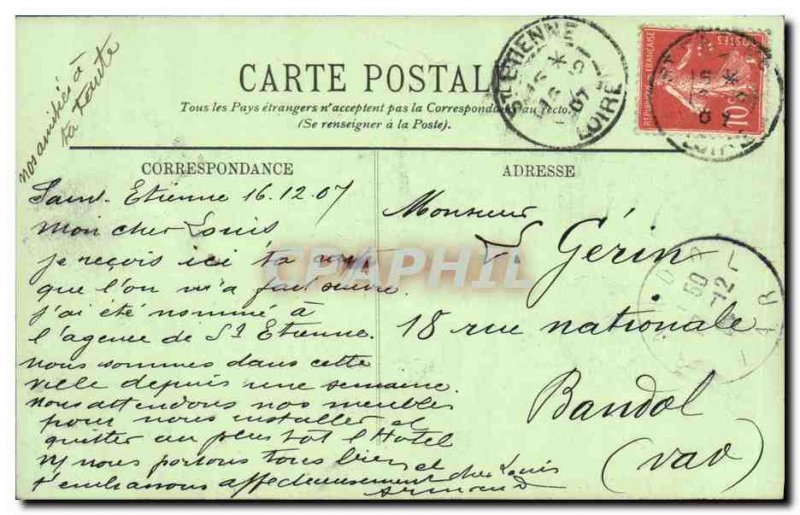 nos amitiés à
ta tante
CARTE POSTALE
Tous les Pays étrangers n'acceptent pas la Correspondance au recto.
(Se renseigner à la Poste).
ST ETIENNE
LOIRE
POSTES
10
CORRESPONDANCE
Saint Etienne 16.12.07
Mon cher Louis
je reçois ici ta
que l'on m'a fait suivre
j'ai été nommé à
l'agence de St Etienne.
nous sommes dans cette
ville depuis une semaine.
nous attendons nos meubles
pour nous installer et
quitter au plus tôt l'Hôtel
nous portons tous bien et
t'embrassons affectueusement cher Louis
Armand
ADRESSE
Monsieur
L. Gérin
18 rue nationale
Bandol
(var)
CPAPHIL